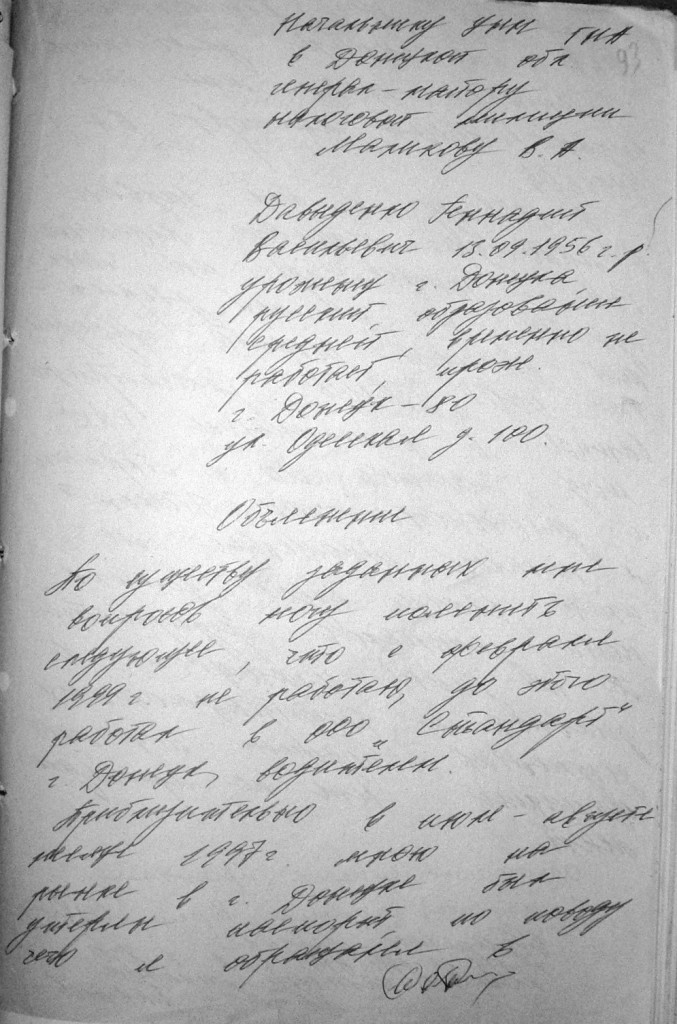 Начальнику УНМ ГНА
93
в Донецкой обл
генерал-майору
налоговой милиции
Маликову В.А.
Давыденко Геннадий
Васильевич 13.09.1956 г.р.
г. Донецка,
русский образование
средней, временно не
работает, прож.
г. Донецк-80
ул. Одесская д. 100.
Объяснение
По существу заданных мне
вопросов могу пояснить
следующее, что с февраля
1999 г не работаю, до этого
работал в ООО „Стандарт"
г. Донецк, водителем.
Приблизительно в июле-августе
месяце 1997 г. мною на
рынке в г. Донецке был
утерян паспорт по поводу
чего я обращался в